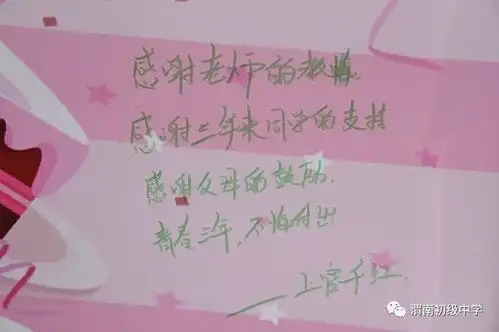 感谢老师的教诲.
感谢三年来同学的支持
感谢父母的鼓励.
青春三年,不悔付出
——上官千江.
渭南初级中学